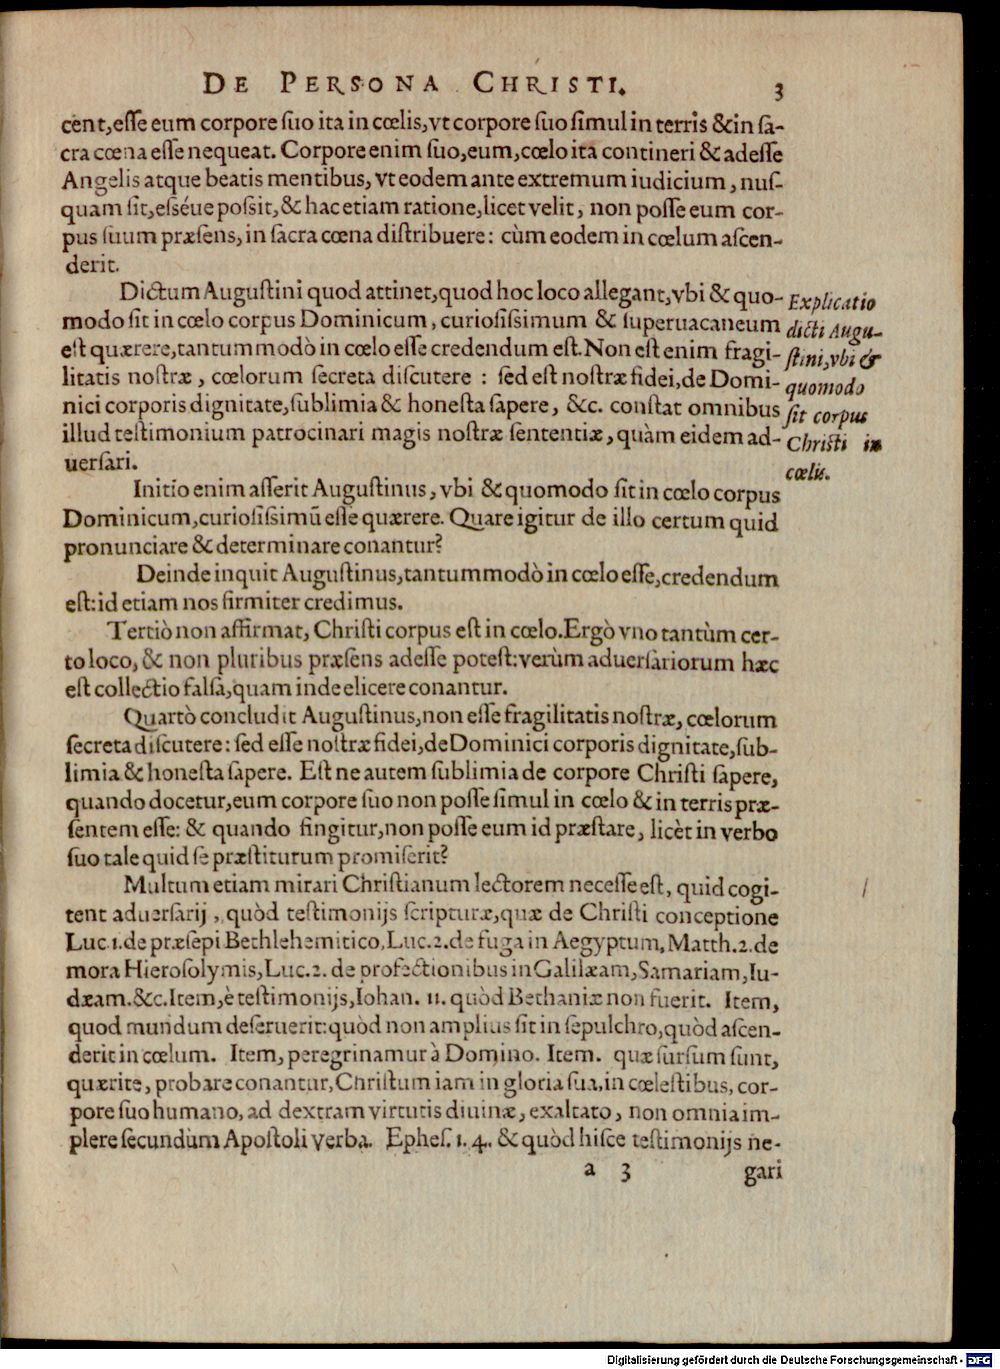 DE PERSONA CHRISTI. 3
cent,eſſe eum corpore ſuo ita in cœlis,vt corpore ſuo ſimul in terris & in ſa-
cra cœna eſſe nequeat. Corpore enim ſuo,eum,cœlo ita contineri & adeſſe
Angelis atque beatis mentibus, vt eodem ante extremum iudicium, nuſ-
quam ſit,eſséue poſsit,& hac etiam ratione,licet velit, non poſſe eum cor-
pus ſuum præſens,in ſacra cœna diſtribuere: cùm eodem in cœlum aſcen-
derit.
Dictum Auguſtini quod attinet,quod hoc loco allegant,vbi & quo-
modo ſit in cœlo corpus Dominicum, curioſiſsimum & ſuperuacaneum
eſt quærere,tantummodò in cœlo eſſe credendum eſt.Non eſt enim fragi-
litatis noſtræ, cœlorum ſecreta diſcutere : ſed eſt noſtræ fidei,de Domi-
nici corporis dignitate,ſublimia & honeſta ſapere, &c. conſtat omnibus
illud teſtimonium patrocinari magis noſtræ ſententiæ,quàm eidem ad-
uerſari.
Explicatio
dicti Augu-
ſtini,vbi &
quomodo
ſit corpus
Chriſti in
cœlis.
Initio enim aſſerit Auguſtinus, vbi & quomodo ſit in cœlo corpus
Dominicum,curioſiſsimū eſſe quærere. Quare igitur de illo certum quid
pronunciare & determinare conantur?
Deinde inquit Auguſtinus,tantummodò in cœlo eſſe,credendum
eſt:id etiam nos firmiter credimus.
Tertiò non affirmat, Chriſti corpus eſt in cœlo.Ergò vno tantùm cer-
to loco, & non pluribus præſens adeſſe poteſt:verùm aduerſariorum hæc
eſt collectio falſa,quam inde elicere conantur.
Quartò concludit Auguſtinus,non eſſe fragilitatis noſtræ, cœlorum
ſecreta diſcutere: ſed eſſe noſtræ fidei,de Dominici corporis dignitate,ſub-
limia & honeſta ſapere. Eſt ne autem ſublimia de corpore Chriſti ſapere,
quando docetur,eum corpore ſuo non poſſe ſimul in cœlo & in terris præ-
ſentem eſſe: & quando fingitur,non poſſe eum id præſtare, licèt in verbo
ſuo tale quid ſe præſtiturum promiſerit?
Multum etiam mirari Chriſtianum lectorem neceſſe eſt, quid cogi-
tent aduerſarij, quòd teſtimonijs ſcripturæ,quæ de Chriſti conceptione
Luc.1.de præſepi Bethlehemitico,Luc.2.de fuga in Aegyptum,Matth.2.de
mora Hieroſolymis,Luc.2. de profectionibus in Galilæam,Samariam,Iu-
dæam.&c.Item,è teſtimonijs,Iohan. 11. quòd Bethaniæ non fuerit. Item,
quod mundum deſeruerit:quòd non amplius ſit in ſepulchro,quòd aſcen-
derit in cœlum. Item, peregrinamur à Domino. Item. quæ ſurſum ſunt,
quærite, probare conantur,Chriſtum iam in gloria ſua,in cœleſtibus, cor-
pore ſuo humano, ad dextram virtutis diuinæ, exaltato, non omnia im-
plere ſecundùm Apoſtoli verba. Epheſ. 1. 4. & quòd hiſce teſtimonijs ne-
a 3 gari
Digitalisierung gefördert durch die Deutsche Forschungsgemeinschaft - DFG